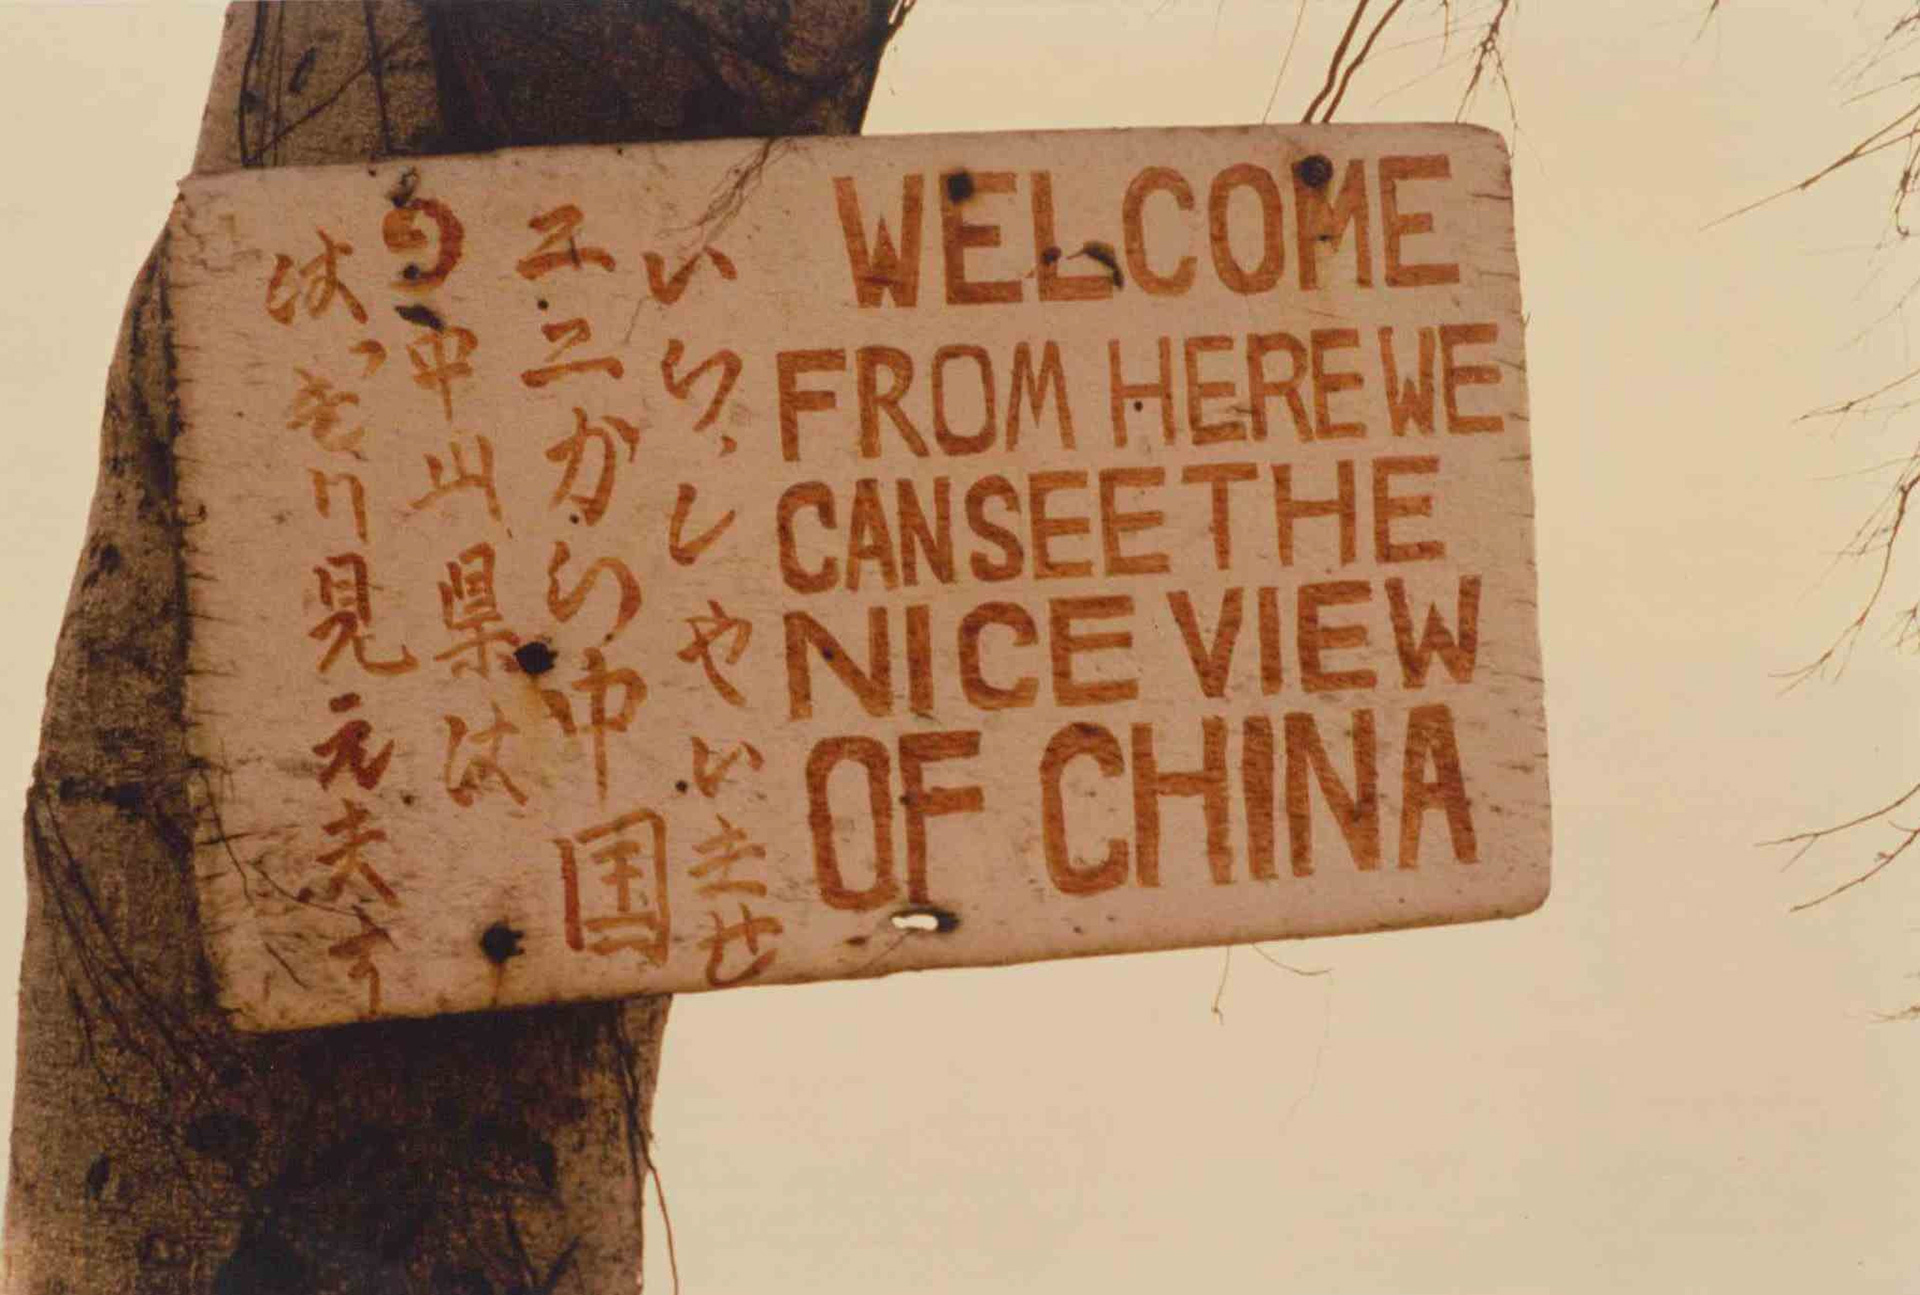 WELCOME
FROM HERE WE
CAN SEE THE
NICE VIEW
OF CHINA
いら、しやいませ
エニから中国
の中山県は
は、きり見元夫す